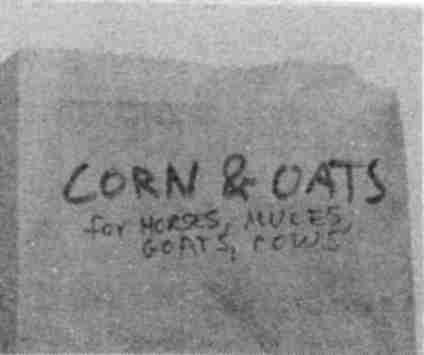 CORN & OATS
for HORSES, MULES,
GOATS, COWS